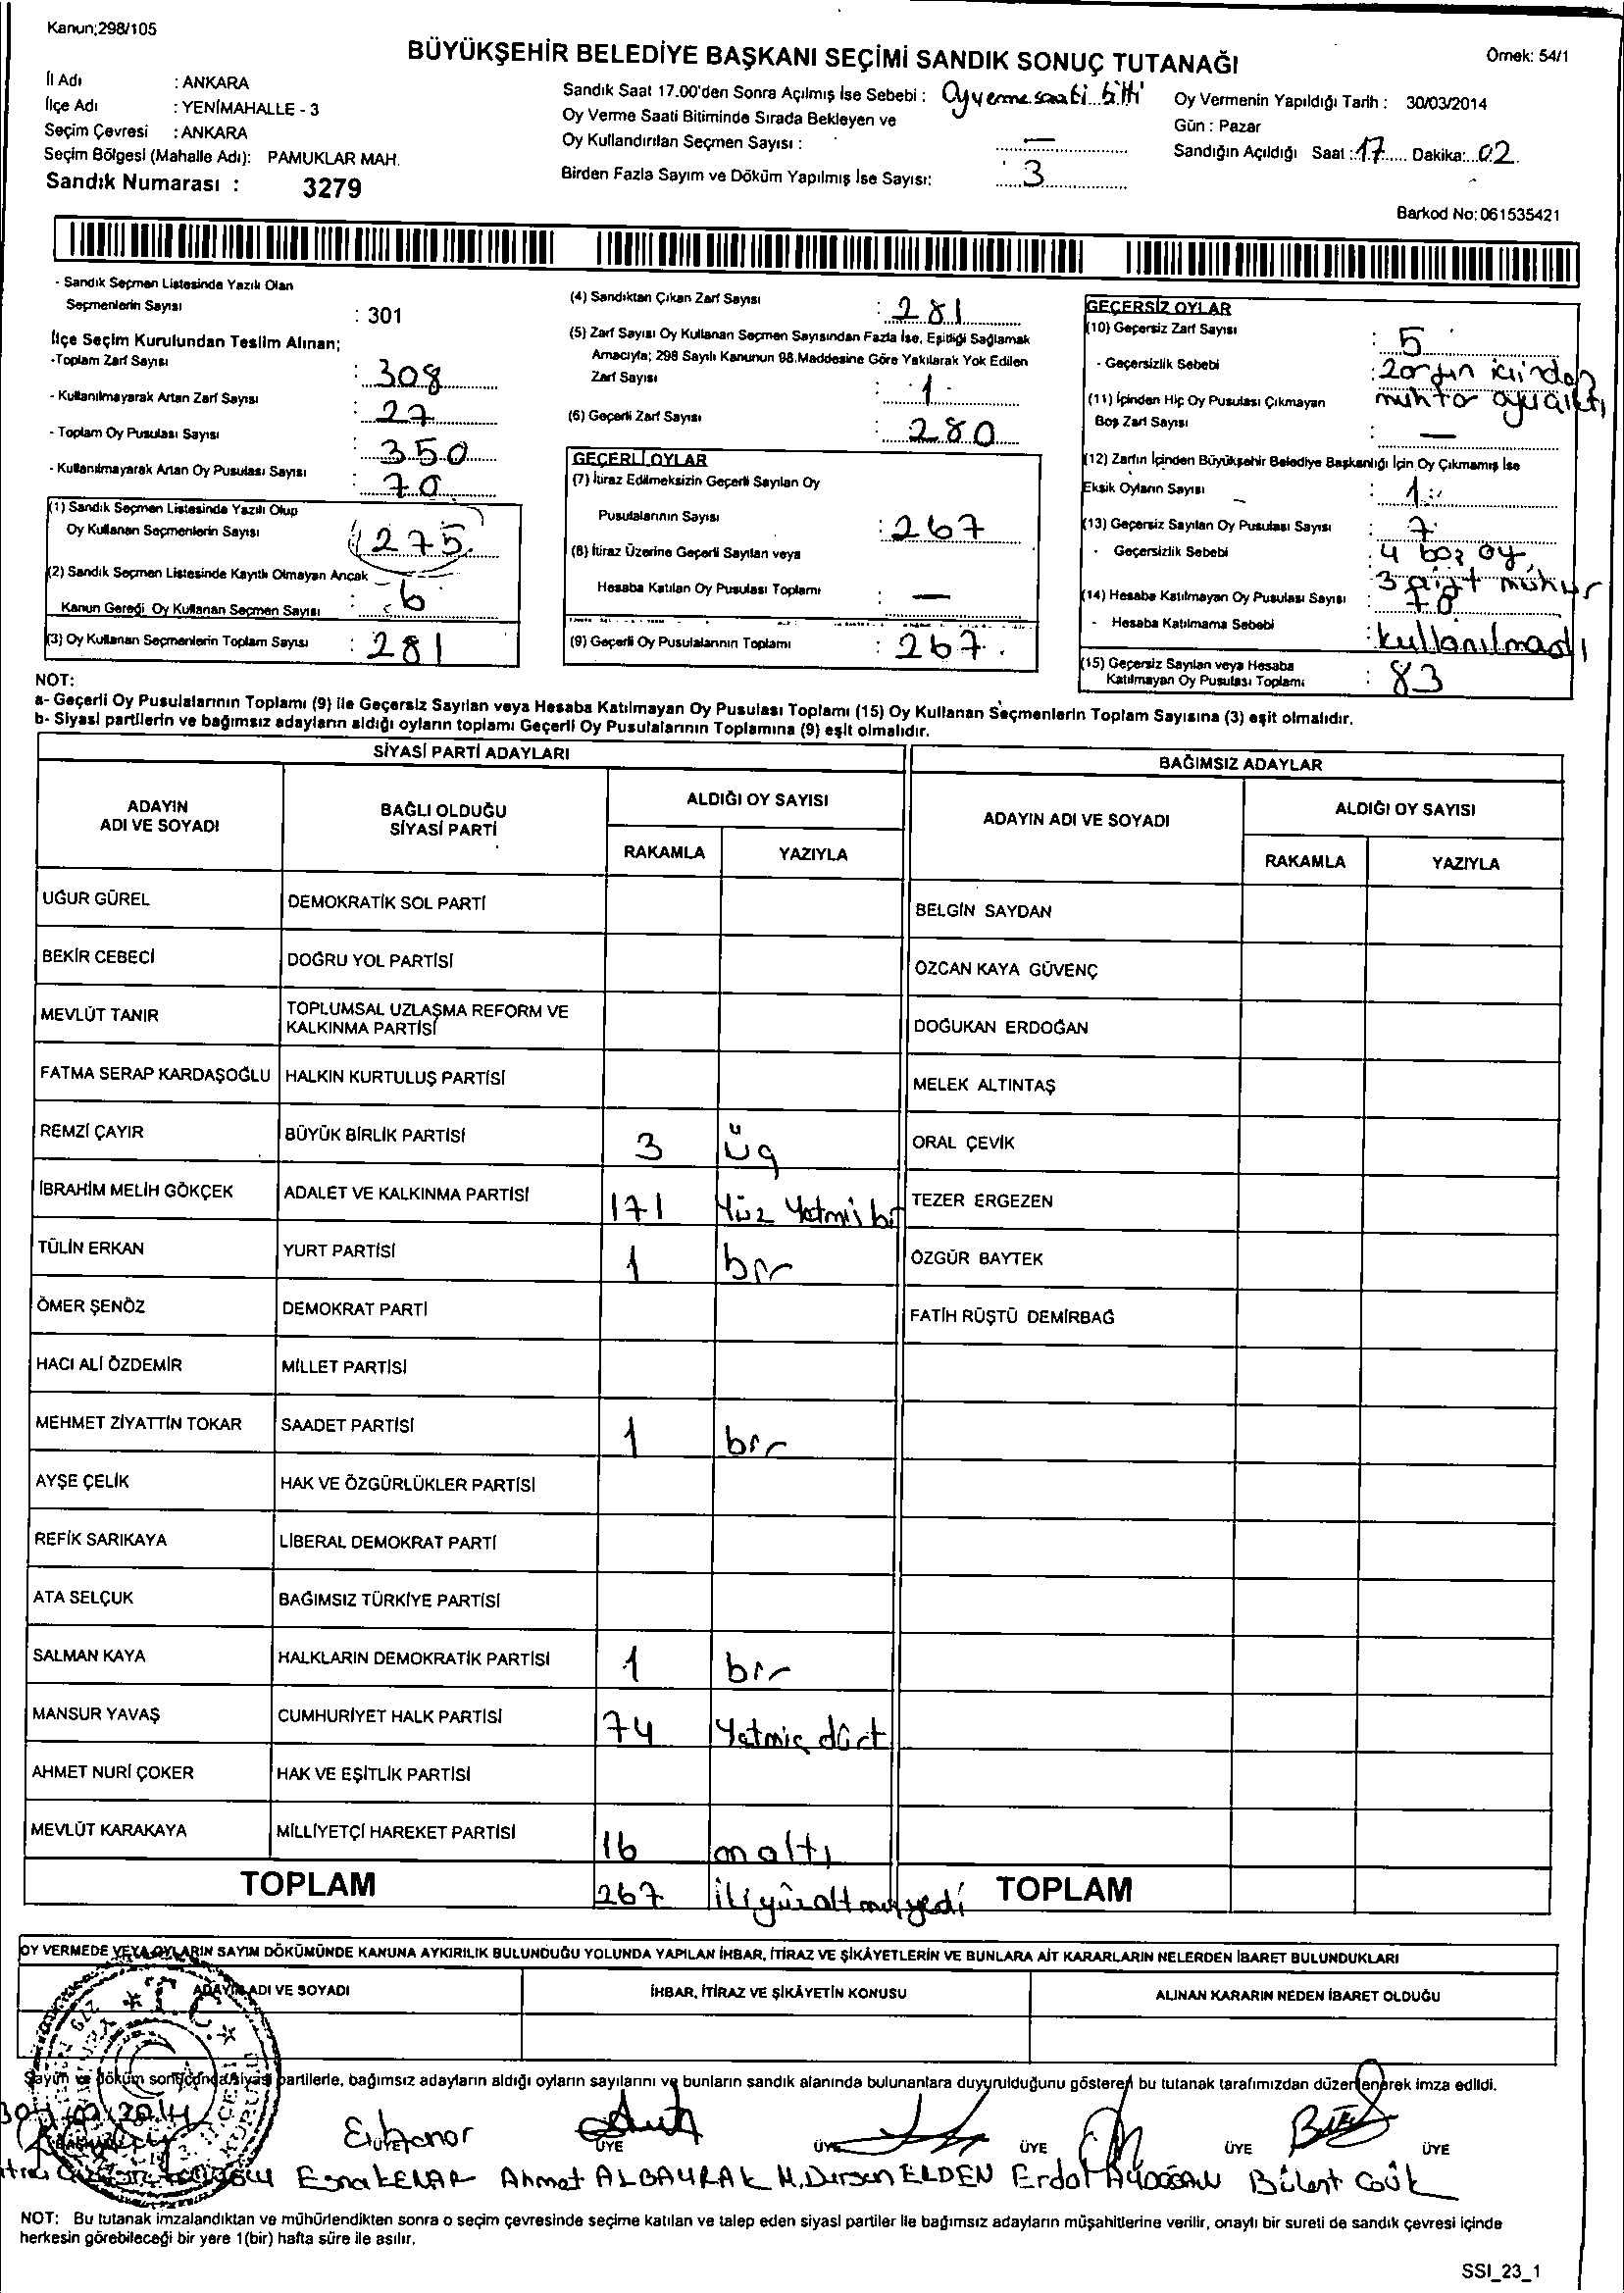 Kanun;298/105
BÜYÜKŞEHİR BELEDİYE BAŞKANI SEÇİMİ SANDIK SONUÇ TUTANAĞI
Örnek: 54/1
İl Adı : ANKARA
İlçe Adı : YENİMAHALLE - 3
Seçim Çevresi : ANKARA
Seçim Bölgesi (Mahalle Adı): PAMUKLAR MAH.
Sandık Numarası : 3279
Sandık Saat 17.00'den Sonra Açılmış İse Sebebi : Oy verme saati bitti
Oy Verme Saati Bitiminde Sırada Bekleyen ve
Oy Kullandırılan Seçmen Sayısı : —
Birden Fazla Sayım ve Döküm Yapılmış İse Sayısı: 3
Oy Vermenin Yapıldığı Tarih : 30/03/2014
Gün : Pazar
Sandığın Açıldığı Saat : 17 Dakika: 02
Barkod No: 061535421
- Sandık Seçmen Listesinde Yazılı Olan
Seçmenlerin Sayısı : 301
İlçe Seçim Kurulundan Teslim Alınan;
-Toplam Zarf Sayısı : 308
- Kullanılmayarak Artan Zarf Sayısı : 27
- Toplam Oy Pusulası Sayısı : 350
- Kullanılmayarak Artan Oy Pusulası Sayısı : 70
(1) Sandık Seçmen Listesinde Yazılı Olup
Oy Kullanan Seçmenlerin Sayısı : 275
(2) Sandık Seçmen Listesinde Kayıtlı Olmayan Ancak
Kanun Gereği Oy Kullanan Seçmen Sayısı : 6
(3) Oy Kullanan Seçmenlerin Toplam Sayısı : 281
(4) Sandıktan Çıkan Zarf Sayısı : 281
(5) Zarf Sayısı Oy Kullanan Seçmen Sayısından Fazla İse, Eşitliği Sağlamak
Amacıyla; 298 Sayılı Kanunun 98.Maddesine Göre Yakılarak Yok Edilen
Zarf Sayısı : 1
(6) Geçerli Zarf Sayısı : 280
GEÇERLİ OYLAR
(7) İtiraz Edilmeksizin Geçerli Sayılan Oy
Pusulalarının Sayısı : 267
(8) İtiraz Üzerine Geçerli Sayılan veya
Hesaba Katılan Oy Pusulası Toplamı : —
(9) Geçerli Oy Pusulalarının Toplamı : 267
GEÇERSİZ OYLAR
(10) Geçersiz Zarf Sayısı : 5
- Geçersizlik Sebebi : zarfın içinden
muhtar oyu çıktı
(11) İçinden Hiç Oy Pusulası Çıkmayan
Boş Zarf Sayısı : —
(12) Zarfın İçinden Büyükşehir Belediye Başkanlığı İçin Oy Çıkmamış İse
Eksik Oyların Sayısı : 1
(13) Geçersiz Sayılan Oy Pusulası Sayısı : 7
- Geçersizlik Sebebi 4 boş oy,
3 çift mühür
(14) Hesaba Katılmayan Oy Pusulası Sayısı : 70
- Hesaba Katılmama Sebebi : kullanılmadı
(15) Geçersiz Sayılan veya Hesaba
Katılmayan Oy Pusulası Toplamı : 83
NOT:
a- Geçerli Oy Pusulalarının Toplamı (9) ile Geçersiz Sayılan veya Hesaba Katılmayan Oy Pusulası Toplamı (15) Oy Kullanan Seçmenlerin Toplam Sayısına (3) eşit olmalıdır.
b- Siyasi partilerin ve bağımsız adayların aldığı oyların toplamı Geçerli Oy Pusulalarının Toplamına (9) eşit olmalıdır.
SİYASİ PARTİ ADAYLARI
ADAYIN ADI VE SOYADI BAĞLI OLDUĞU SİYASİ PARTİ ALDIĞI OY SAYISI
RAKAMLA YAZIYLA
UĞUR GÜREL DEMOKRATİK SOL PARTİ
BEKİR CEBECİ DOĞRU YOL PARTİSİ
MEVLÜT TANIR TOPLUMSAL UZLAŞMA REFORM VE KALKINMA PARTİSİ
FATMA SERAP KARDAŞOĞLU HALKIN KURTULUŞ PARTİSİ
REMZİ ÇAYIR BÜYÜK BİRLİK PARTİSİ 3 üç
İBRAHİM MELİH GÖKÇEK ADALET VE KALKINMA PARTİSİ 171 Yüz Yetmiş bir
TÜLİN ERKAN YURT PARTİSİ 1 bir
ÖMER ŞENÖZ DEMOKRAT PARTİ
HACI ALİ ÖZDEMİR MİLLET PARTİSİ
MEHMET ZİYATTİN TOKAR SAADET PARTİSİ 1 bir
AYŞE ÇELİK HAK VE ÖZGÜRLÜKLER PARTİSİ
REFİK SARIKAYA LİBERAL DEMOKRAT PARTİ
ATA SELÇUK BAĞIMSIZ TÜRKİYE PARTİSİ
SALMAN KAYA HALKLARIN DEMOKRATİK PARTİSİ 1 bir
MANSUR YAVAŞ CUMHURİYET HALK PARTİSİ 74 Yetmiş dört
AHMET NURİ ÇOKER HAK VE EŞİTLİK PARTİSİ
MEVLÜT KARAKAYA MİLLİYETÇİ HAREKET PARTİSİ 16 onaltı
TOPLAM 267 ikiyüzaltmışyedi
BAĞIMSIZ ADAYLAR
ADAYIN ADI VE SOYADI ALDIĞI OY SAYISI
RAKAMLA YAZIYLA
BELGİN SAYDAN
ÖZCAN KAYA GÜVENÇ
DOĞUKAN ERDOĞAN
MELEK ALTINTAŞ
ORAL ÇEVİK
TEZER ERGEZEN
ÖZGÜR BAYTEK
FATİH RÜŞTÜ DEMİRBAĞ
TOPLAM
OY VERMEDE VEYA OYLARIN SAYIM DÖKÜMÜNDE KANUNA AYKIRILIK BULUNDUĞU YOLUNDA YAPILAN İHBAR, İTİRAZ VE ŞİKÂYETLERİN VE BUNLARA AİT KARARLARIN NELERDEN İBARET BULUNDUKLARI
ADAYIN ADI VE SOYADI İHBAR, İTİRAZ VE ŞİKÂYETİN KONUSU ALINAN KARARIN NEDEN İBARET OLDUĞU
Sayım ve döküm sonucunda siyasi partilerle, bağımsız adayların aldığı oyların sayılarını ve bunların sandık alanında bulunanlara duyurulduğunu gösteren bu tutanak tarafımızdan düzenlenerek imza edildi.
T.C.
ÜYE ÜYE ÜYE ÜYE ÜYE ÜYE
Esra KENAR Ahmet ALBAYRAK H. Dursun ELDEN Erdal AYDOĞAN Bülent
NOT: Bu tutanak imzalandıktan ve mühürlendikten sonra o seçim çevresinde seçime katılan ve talep eden siyasi partiler ile bağımsız adayların müşahitlerine verilir, onaylı bir sureti de sandık çevresi içinde
herkesin görebileceği bir yere 1(bir) hafta süre ile asılır.
SSI_23_1